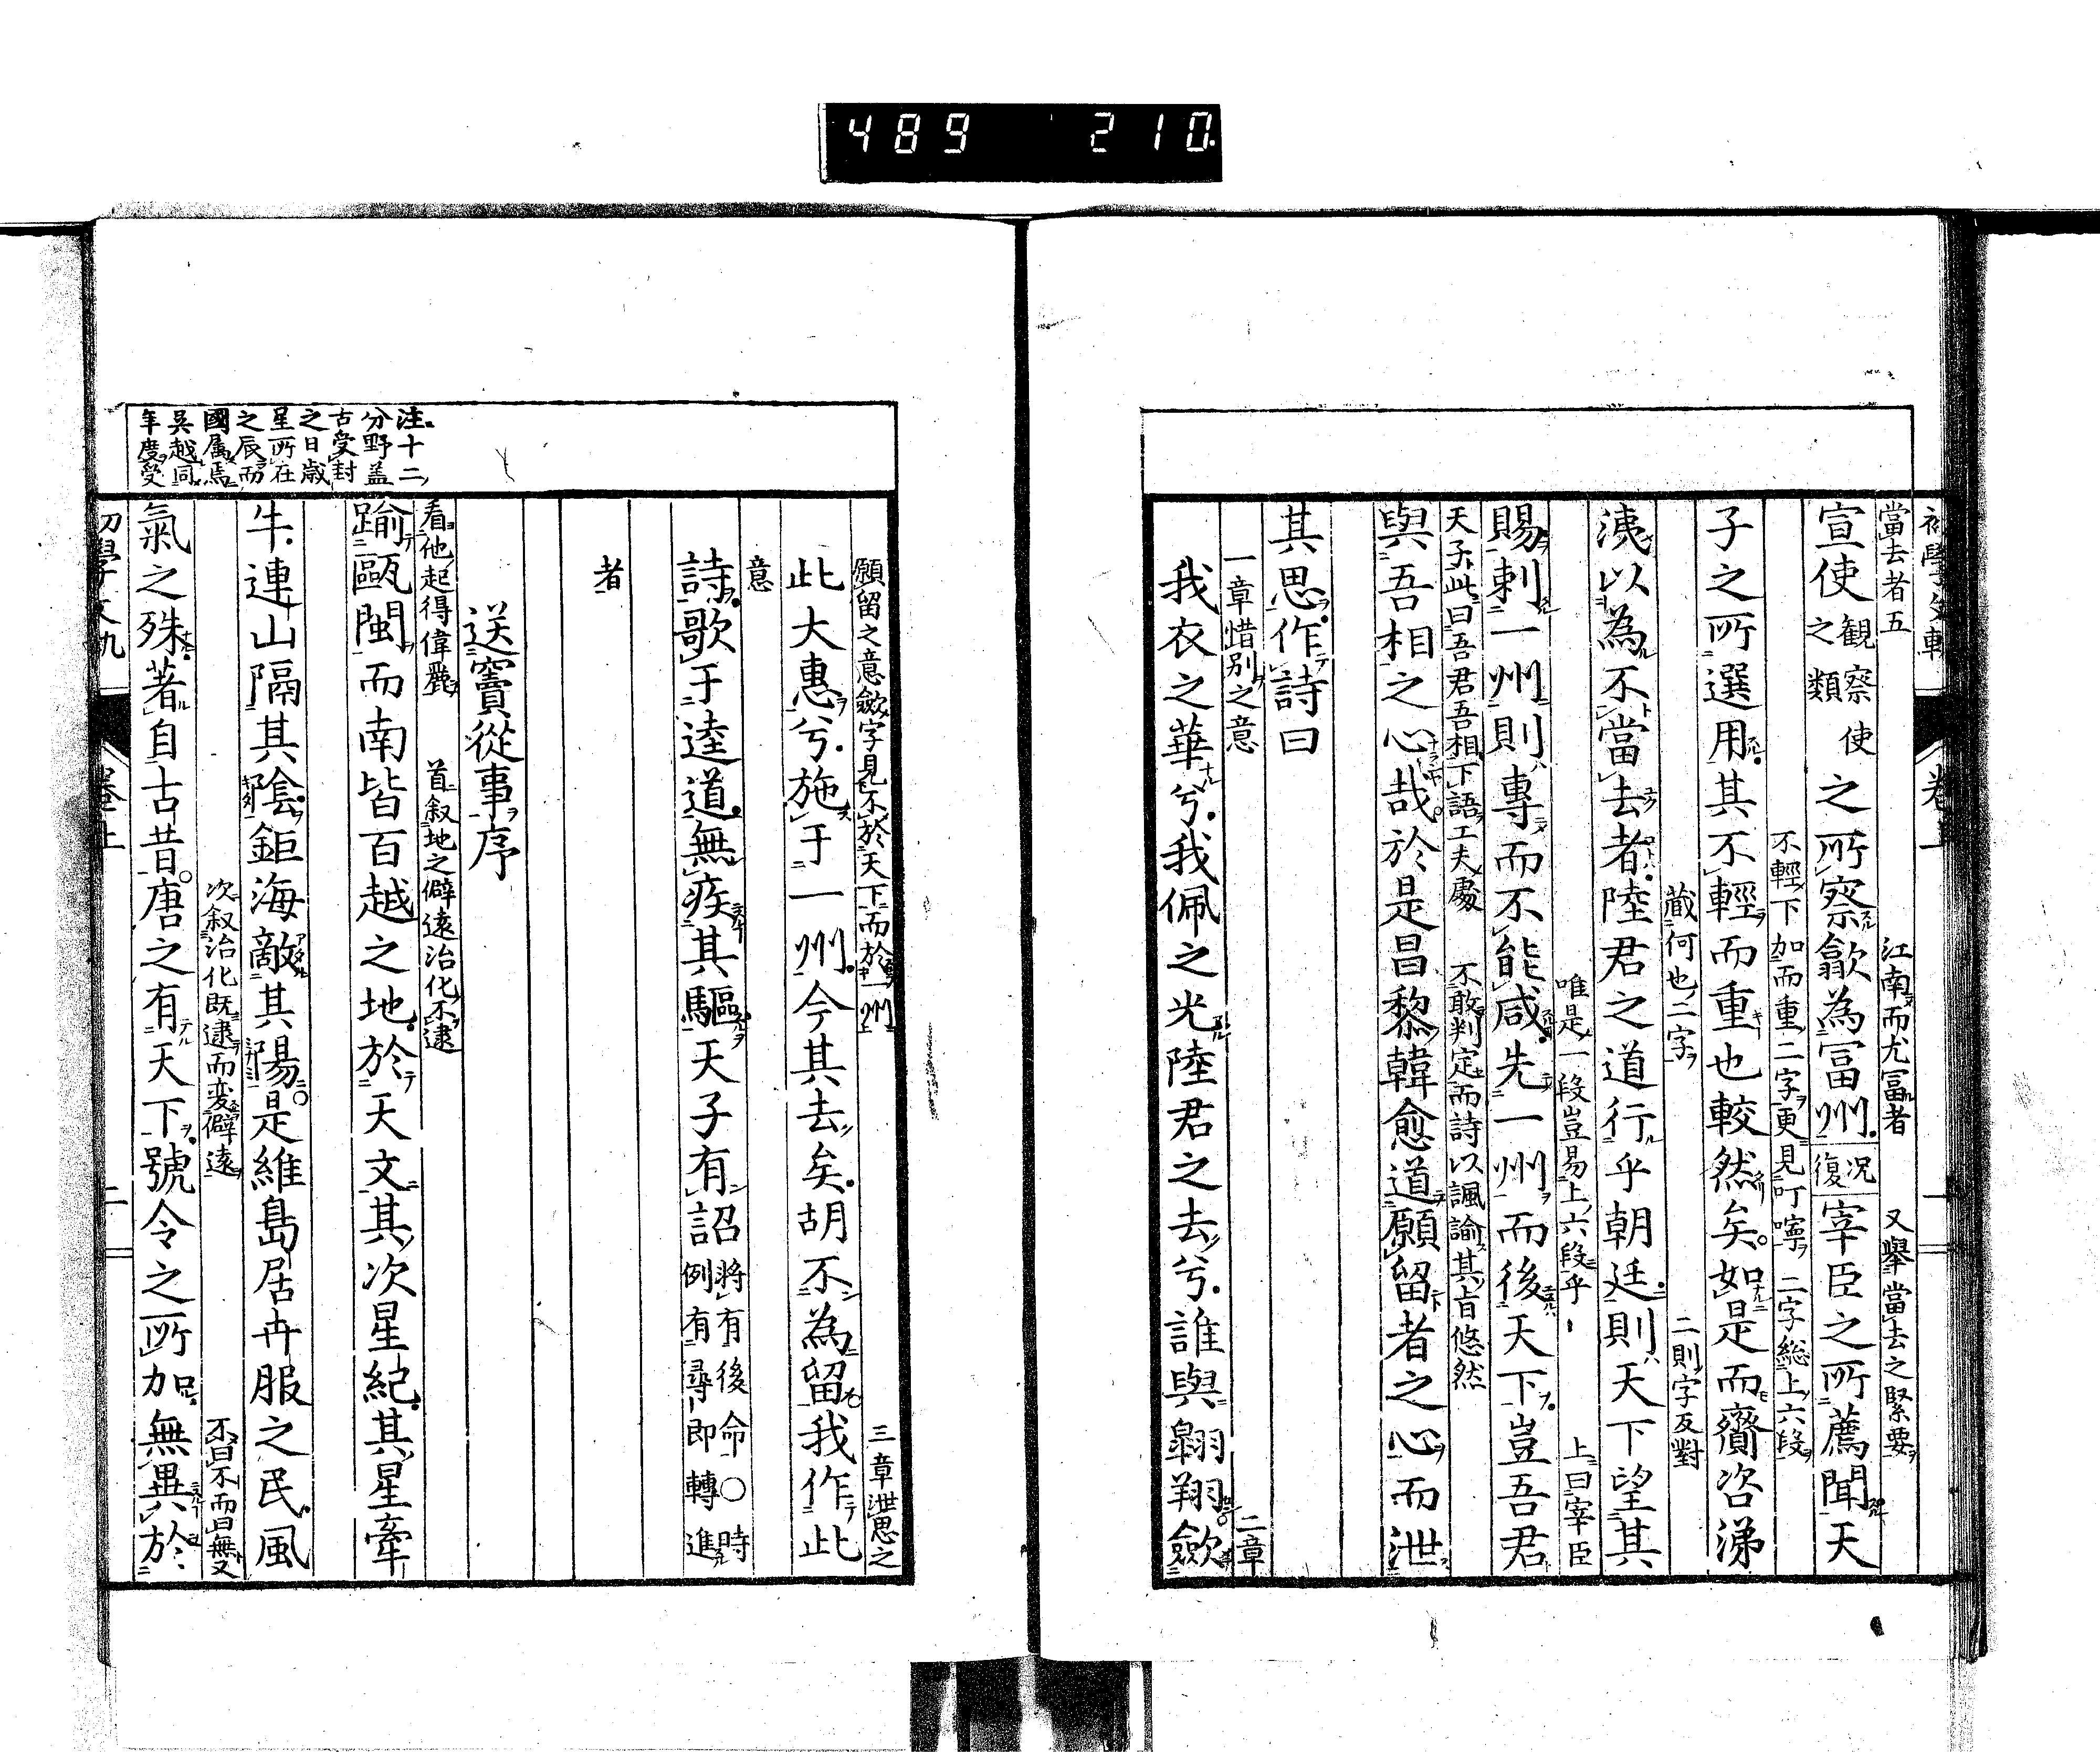 489 210
初學文軌 卷上 一
當去者五 江南而尤冨者 又擧當去之緊要
宣使觀察使之類之所察歙為冨州況復宰臣之所薦聞天
不輕下加而重二字更見叮嚀 二字総上六段
子之所選用其不輕而重也較然矣如是而齎咨涕
蔵何也二字 二則字反對
洟以為不當去者陸君之道行乎朝廷則天下望其
唯是一段豈易上六段乎 上曰宰臣
賜刺一州則專而不能咸先一州而後天下豈吾君
天子此曰吾君吾相下語工夫處 不敢判定而詩以諷諭其旨悠然
與吾相之心哉於是昌黎韓愈道願留者之心而泄
其思作詩曰
一章惜別之意 二章
我衣之華兮我佩之光陸君之去兮誰與翱翔歛
願留之意歛字見不於天下而於一州 三章泄思之
此大惠兮施于一州今其去矣胡不為留我作此
意
詩歌于逵道無疾其驅天子有詔將有後命○時例有尋即轉進
者
送竇從事序
看他起得偉麗 首叙地之僻遠治化不逮
踰甌閩而南皆百越之地於天文其次星紀其星牽
牛連山隔其陰鉅海敵其陽是維島居卉服之民風
次叙治化既逮而変僻遠 不曰不而曰無又
氣之殊著自古昔唐之有天下號令之所加無異於
注十二
分野盖
古受封
之日歳
星所在
之辰而
國属焉
吳越同
年度受
初學文軌 卷上 二